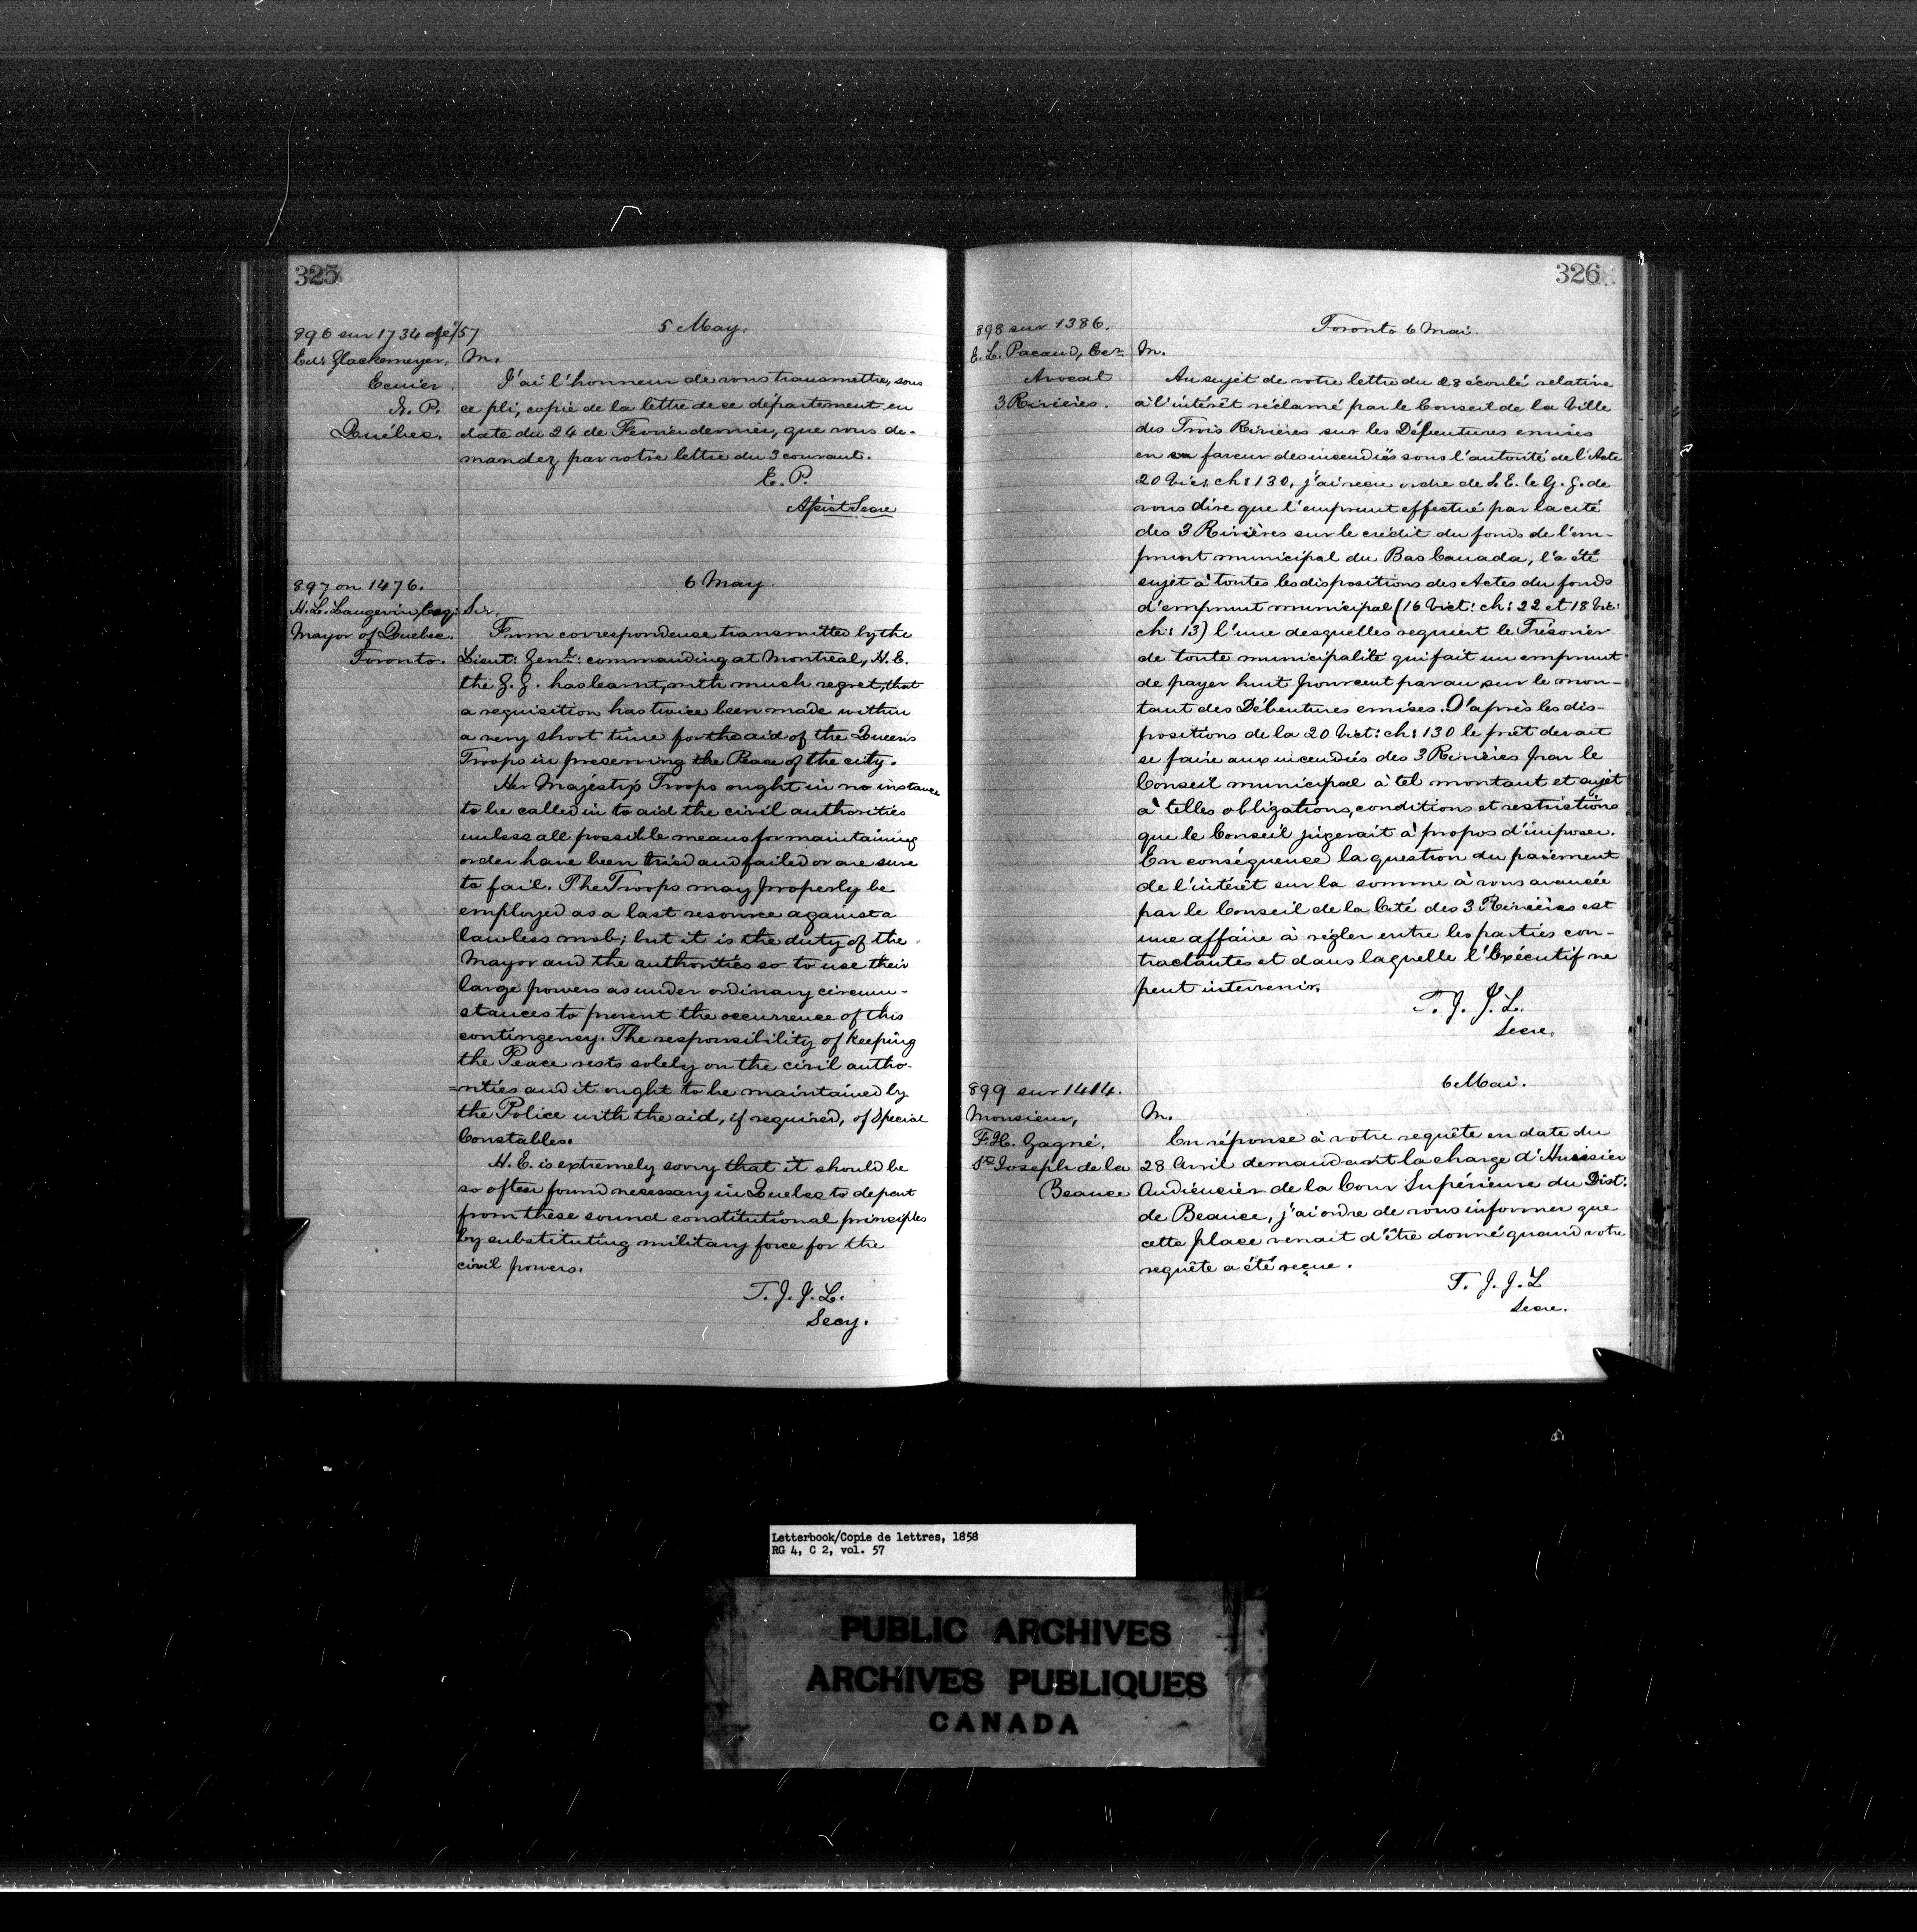 325
896 sur 1734 de/57
5 May.
Ed: Glackemeyer,
Ecuier.
N. P.
Québec.
M.
J'ai l'honneur de vous transmettre, sous
ce pli, copie de la lettre de ce département en
date du 24 de Fevrier dernier, que vous de-
mandez par votre lettre du 3 courant.
E. P.
Assist Secre
897 on 1476.
6 May.
H. L. Langevin, Esq:
Mayor of Quebec.
Toronto.
Sir,
From correspondence transmitted by the
Lieut: Genl: commanding at Montreal, H. E.
the G. G. has learnt, with much regret, that
a requisition has twice been made within
a very short time for the aid of the Queen's
Troops in preserving the Peace of the city.
Her Majesty's Troops ought in no instance
to be called in to aid the civil authorities
unless all possible means for maintaining
order have been tried and failed or are sure
to fail. The Troops may properly be
employed as a last resource against a
lawless mob; but it is the duty of the
Mayor and the authorities so to use their
large powers as under ordinary circum-
stances to prevent the occurrence of this
contingency. The responsibility of keeping
the Peace rests solely on the civil autho-
=rities and it ought to be maintained by
the Police with the aid, if required, of Special
Constables.
H. E. is extremely sorry that it should be
so often found necessary in Quebec to depart
from these sound constitutional principles
by substituting military force for the
civil powers.
T. J. J. L.
Secy.
326
898 sur 1386.
Toronto 6 Mai.
E. L. Pacaud, Ecr
Avocat
3 Rivières.
M.
Au sujet de votre lettre du 28 écoulé relative
à l'intérêt réclamé par le Conseil de la Ville
des Trois Rivières sur les Débentures emises
en sa faveur des incendiés sous l'autorité de l'Acte
20 Vict: ch: 130, j'ai reçu ordre de S. E. le G. G. de
vous dire que l'emprunt effectué par la cité
des 3 Rivières sur le crédit du fonds de l'em-
prunt municipal du Bas Canada, l'a été
sujet à toutes les dispositions des Actes du fonds
d'emprunt municipal (16 Vict: ch: 22 et 18 Vict:
ch: 13) l'une desquelles requiert le Trésorier
de toute municipalité qui fait un emprunt
de payer huit pour cent par an, sur le mon-
tant des Débentures emises. D'après les dis-
positions de la 20 Vict: ch: 130 le prêt devait
se faire aux incendiés des 3 Rivières par le
Conseil municipal à tel montant et sujet
à telles obligations, conditions et restrictions
que le Conseil jugerait à propos d'imposer.
En conséquence la question du paiement
de l'intérêt sur la somme à vous avancée
par le Conseil de la Cité des 3 Rivières est
une affaire à régler entre les parties con-
tractantes et dans laquelle l'Exécutif ne
peut intervenir.
T. J. J. L.
Secre.
899 sur 1414.
6 Mai.
Monsieur,
F. H. Gagné,
St Joseph de la
Beauce
M.
En réponse à votre requête en date du
28 Avril demandant la charge d'Huissier
Audiencier de la Cour Supérieure du Dist:
de Beauce, j'ai ordre de vous informer que
cette place venait d'être donné quand votre
requête a été reçue.
T. J. J. L
Secre.
Letterbook/Copie de lettres, 1858
RG 4, C 2, vol. 57
PUBLIC ARCHIVES
ARCHIVES PUBLIQUES
CANADA